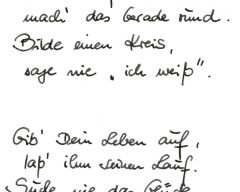 mach' das Gerade rund.
Bilde einen Kreis,
sage nie „ich weiß".
Gib' Dein Leben auf,
laß' ihm seinen Lauf.
nie das